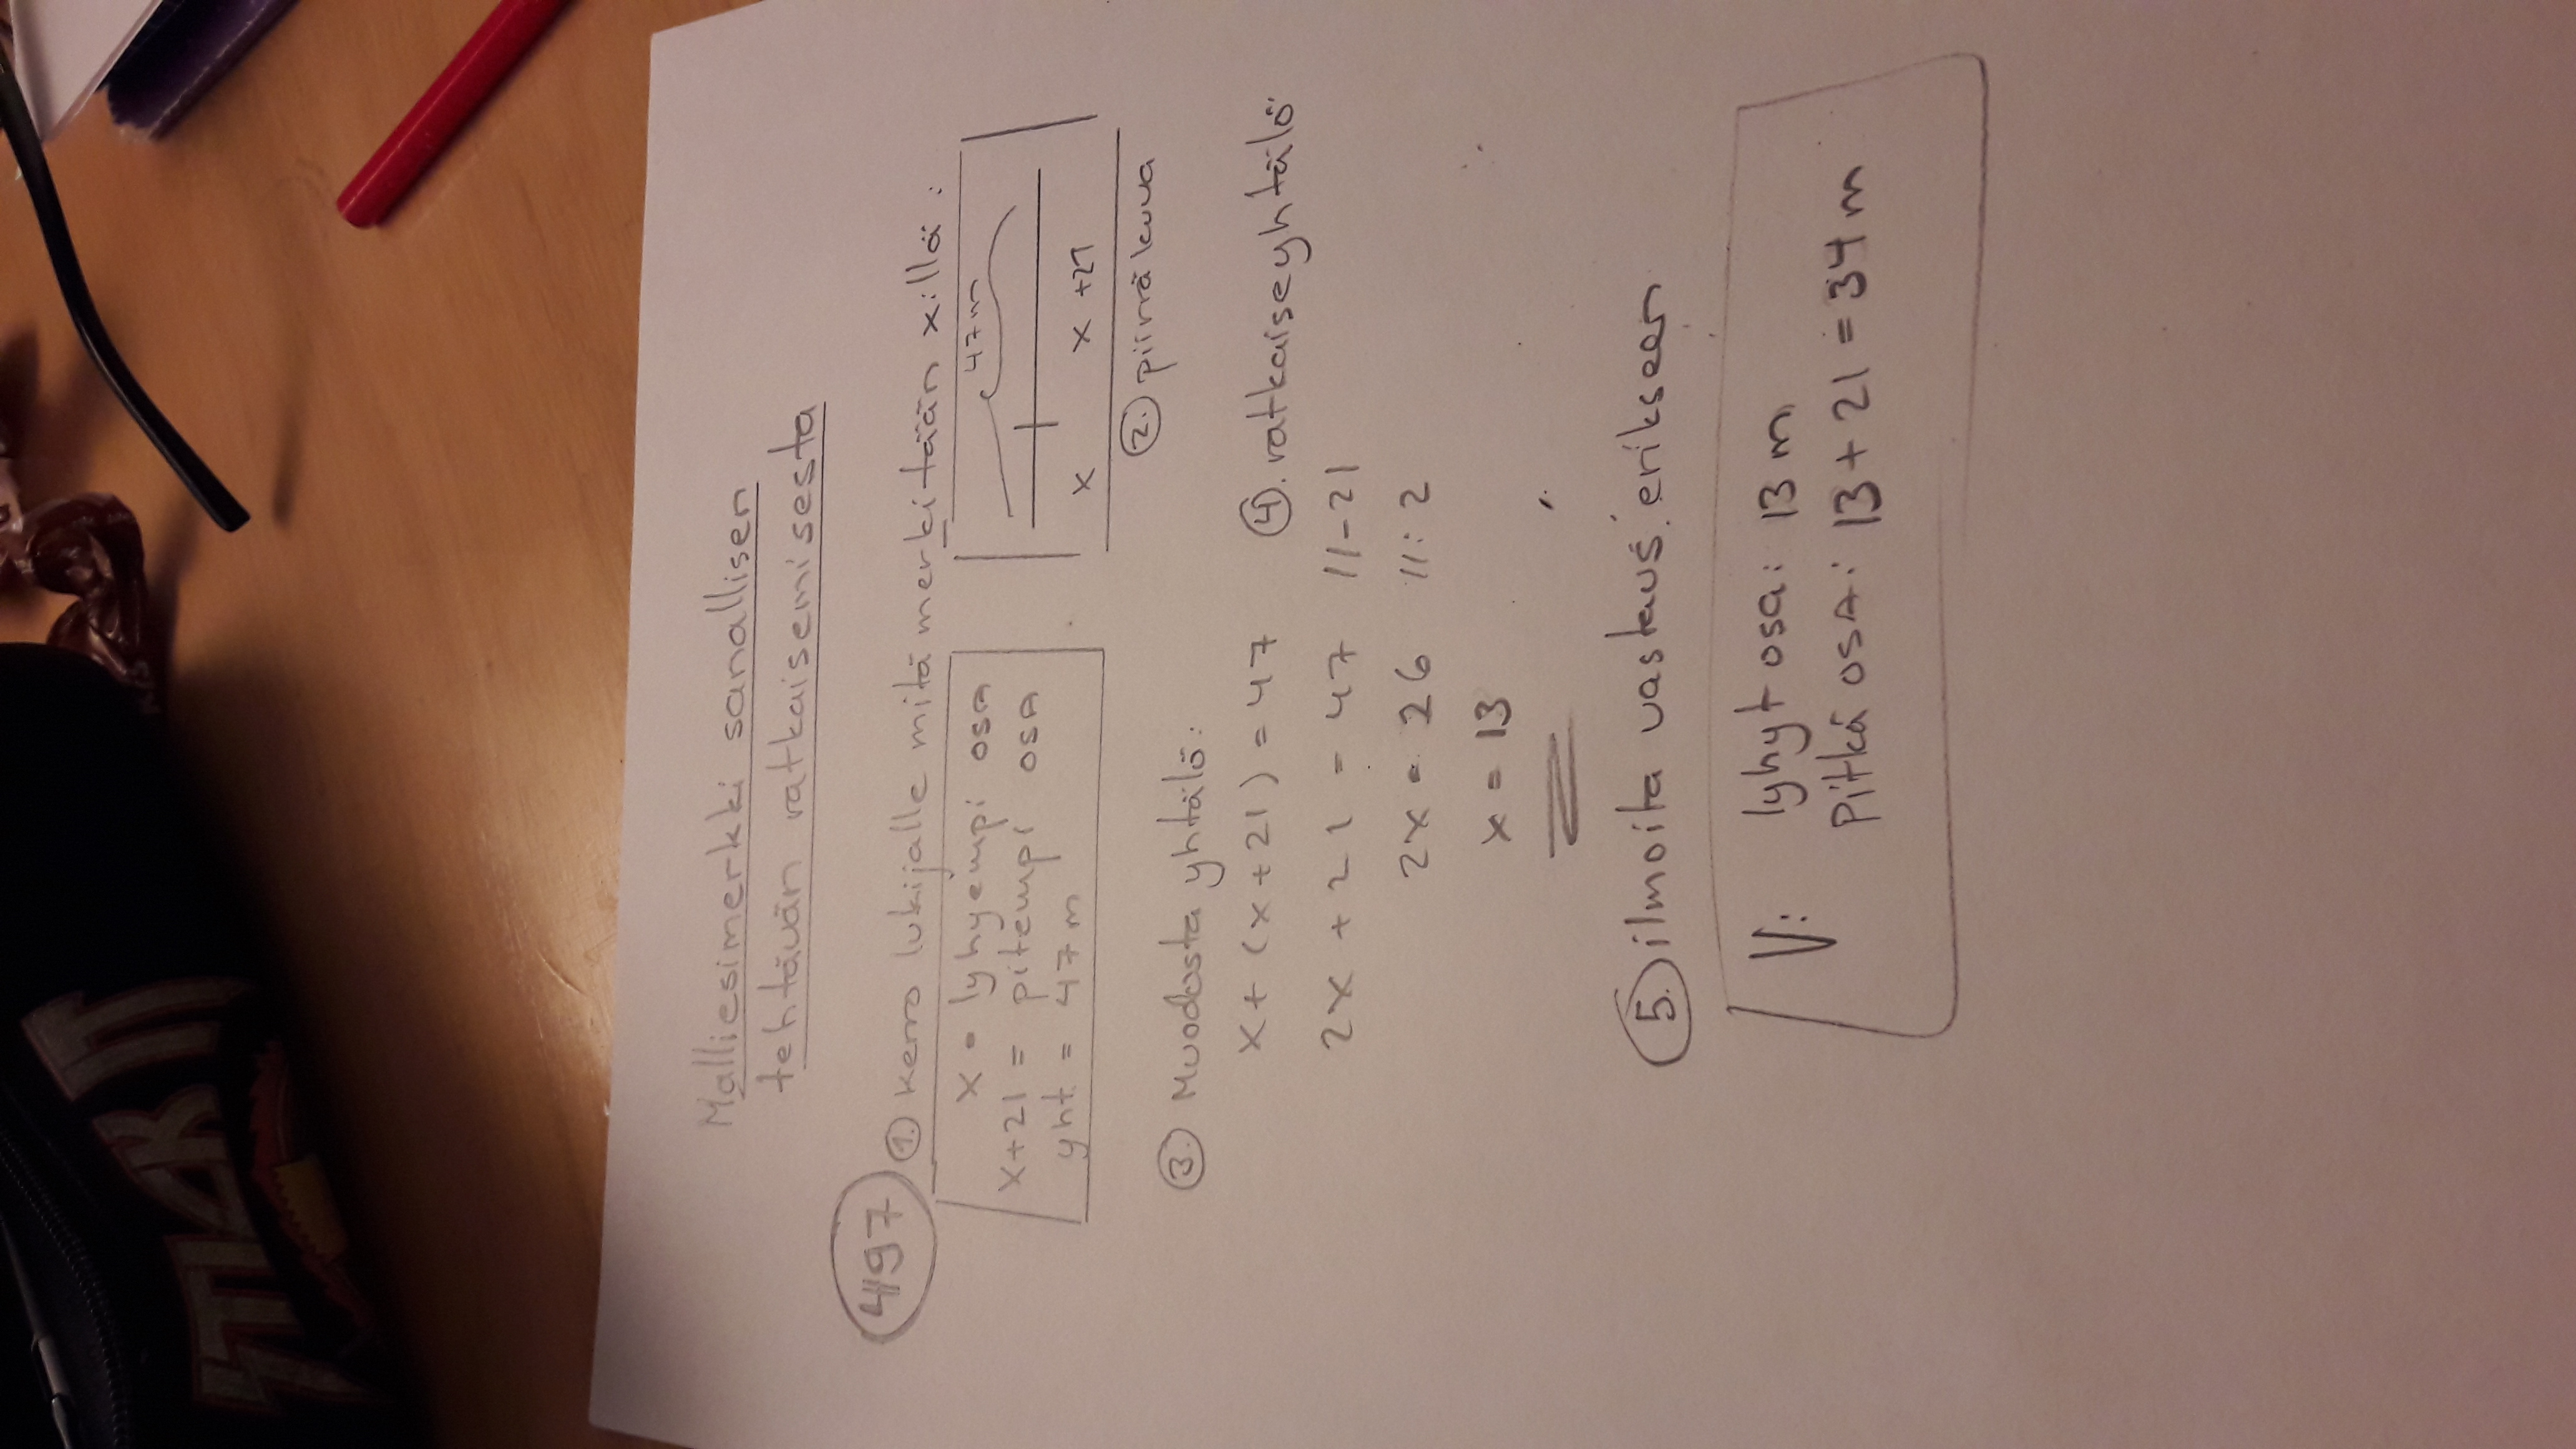 Malliesimerkki sanallisen
tehtävän ratkaisemisesta
497
1. Kerro lukijalle mitä merkitään x:llä:
x = lyhyempi osa
x+21 = pitempi osa
yht. = 47 m
47 m
x x +21
2. piirrä kuva
3. Muodosta yhtälö:
4. ratkaise yhtälö
x + (x+21) = 47
2x + 21 = 47 ||-21
2x = 26 ||: 2
x = 13
5. ilmoita vastaus erikseen
V: lyhyt osa: 13 m
Pitkä osa: 13 + 21 = 34 m